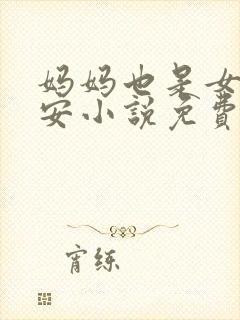 妈妈也是女
安小說免費
宵练